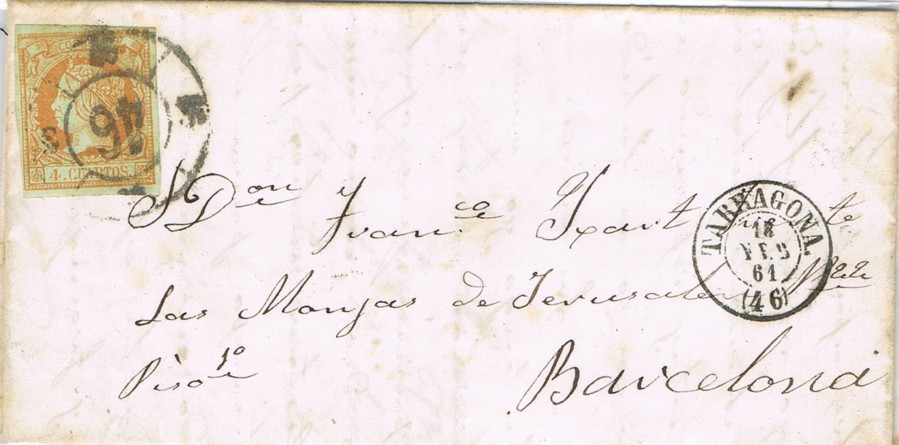 46
4 CUARTOS
S Don Franco Ixart
Las Monjas de Jerusale
Piso 1º
Barcelona
TARRAGONA.
FEB
61
(46)